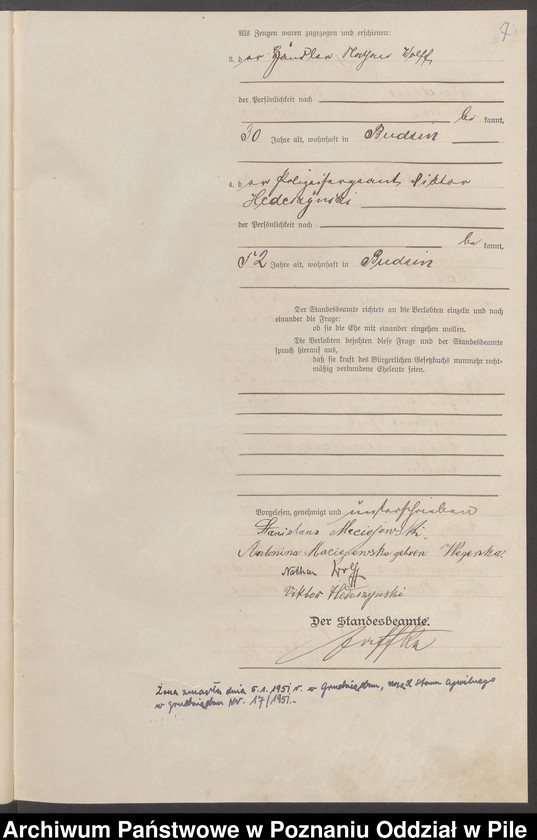 7
Als Zeugen waren zugezogen und erschienen:
3. der Händler Nathan Wolff,
der Persönlichkeit nach
be kannt,
30 Jahre alt, wohnhaft in Budsin
4. der Polizeisergeant Viktor
Hedeszyński
der Persönlichkeit nach
be kannt,
52 Jahre alt, wohnhaft in Budsin
Der Standesbeamte richtete an die Verlobten einzeln und nach
einander die Frage:
ob sie die Ehe mit einander eingehen wollen.
Die Verlobten bejahten diese Frage und der Standesbeamte
sprach hierauf aus,
daß sie kraft des Bürgerlichen Gesetzbuchs nunmehr recht-
mäßig verbundene Eheleute seien.
Vorgelesen, genehmigt und unterschrieben
Stanislaus Maciejewski.
Antonina Maciejewska geboren
Nathan Wolff
Viktor Hedeszynski
Der Standesbeamte.
Żona zmarła dnia 5.1.1951 r. w Grudziądzu, Urząd Stanu Cywilnego
w Grudziądzu Nr. 17/1951.-
Archiwum Państwowe w Poznaniu Oddział w Pile